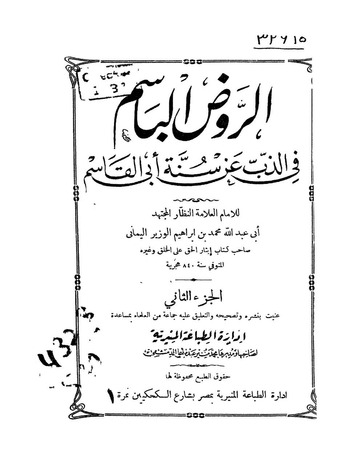 ٣٢٦١٥
الروض الباسم
في الذب عن سنة أبي القاسم
للامام العلامة النظار المجتهد
أبي عبد الله محمد بن ابراهيم الوزير اليماني
صاحب كتاب إيثار الحق على الخلق وغيره
المتوفي سنة ٨٤٠ هجرية
الجزء الثاني
عنيت بنشره وتصحيحه والتعليق عليه جماعة من العلماء بمساعدة
إدارة الطباعة المنيرية
حقوق الطبع محفوظة لها
ادارة الطباعة المنيرية بمصر بشارع الكحكيين نمرة ١